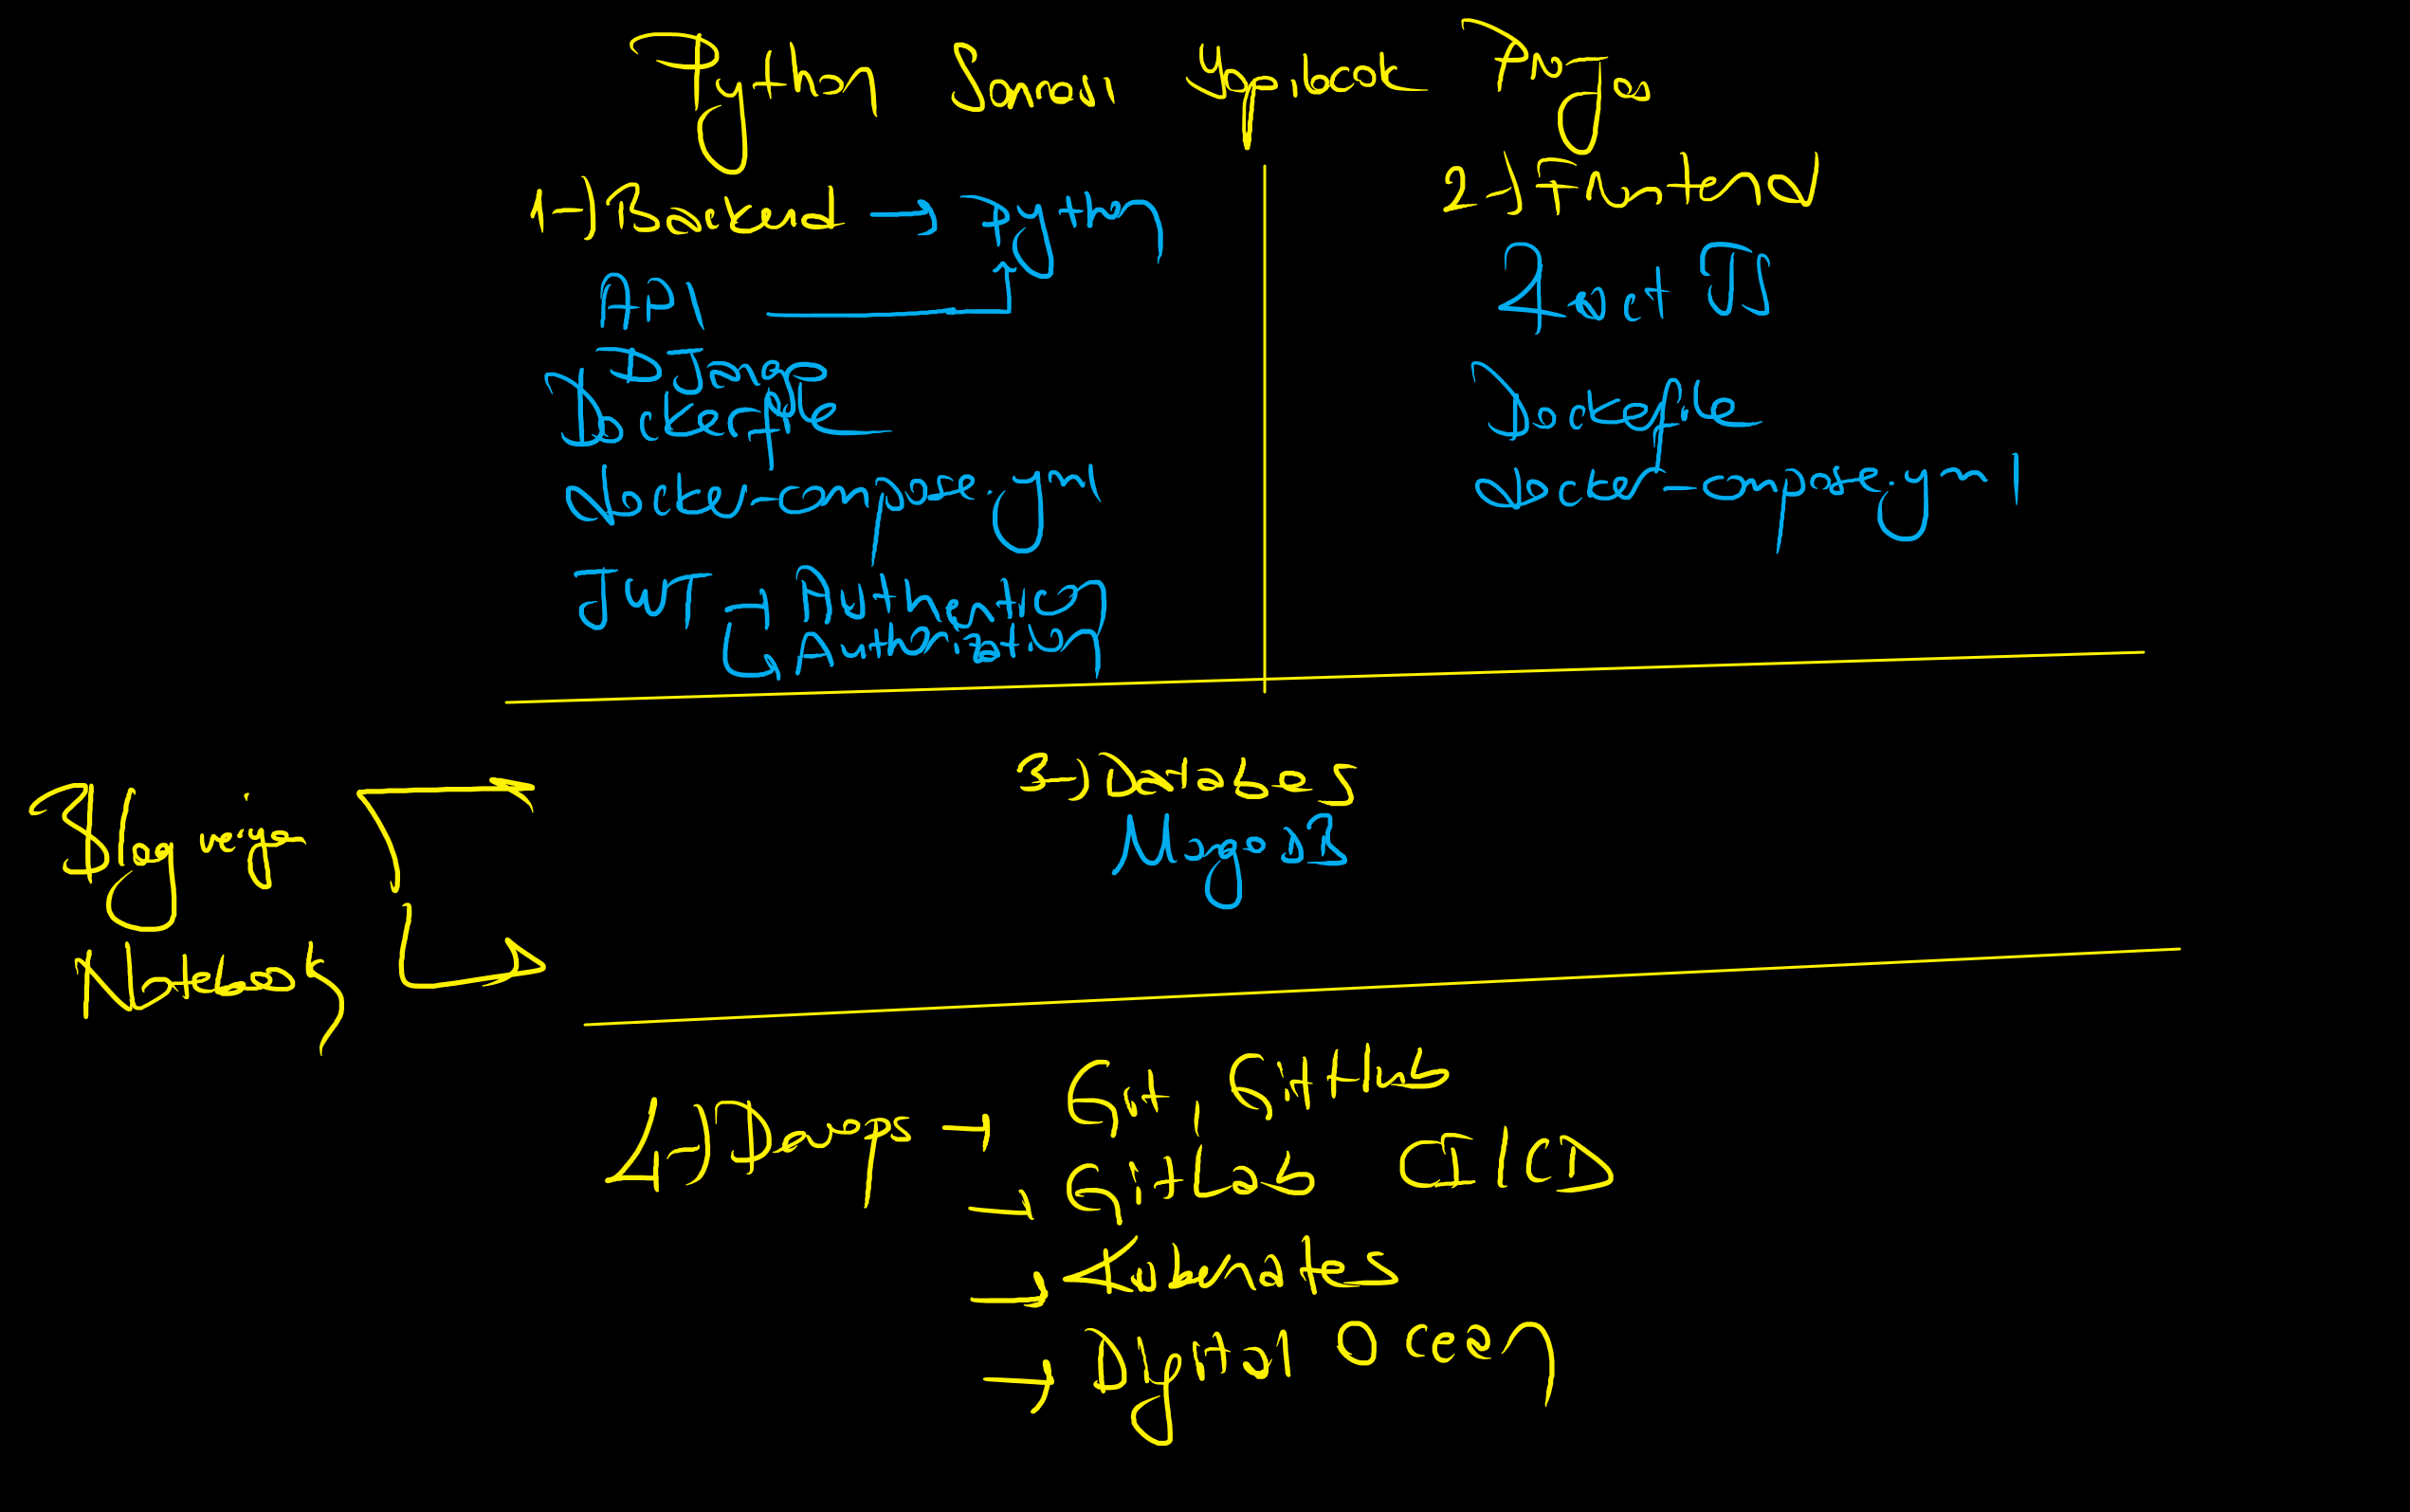 Python Sonrası Yapılacak Proje
1-) Backend → Python
API
DJango
Dockerfile
docker-compose.yml
JWT → Authentication
Authorization
2-) Frontend
React TS
Dockefile
docker-compose.yml
3-) Databes
MogoDB
Blog veya
Notebook
4-) Devops → Git, GitHub
→ GitLab CI/CD
→ Kubernates
→ Digital Ocean